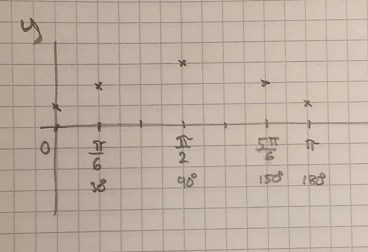 y
0 π/6 π/2 5π/6 π
30° 90° 150° 180°